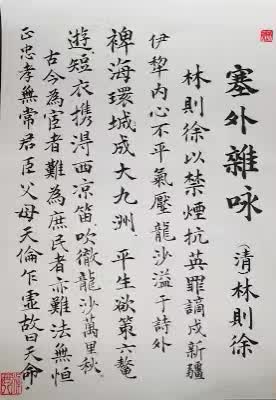 塞外雜咏
(清)林則徐
林則徐以禁煙抗英罪謫戍新疆
伊犂内心不平氣壓龍沙溢于詩外
裨海環城成大九洲平生欲策六鰲
遊短衣携淂西凉笛吹徹龍沙萬里秋
古今為宦者難為庶民者亦難法無恒
正忠孝無常君臣父母天倫乍虛故曰天命